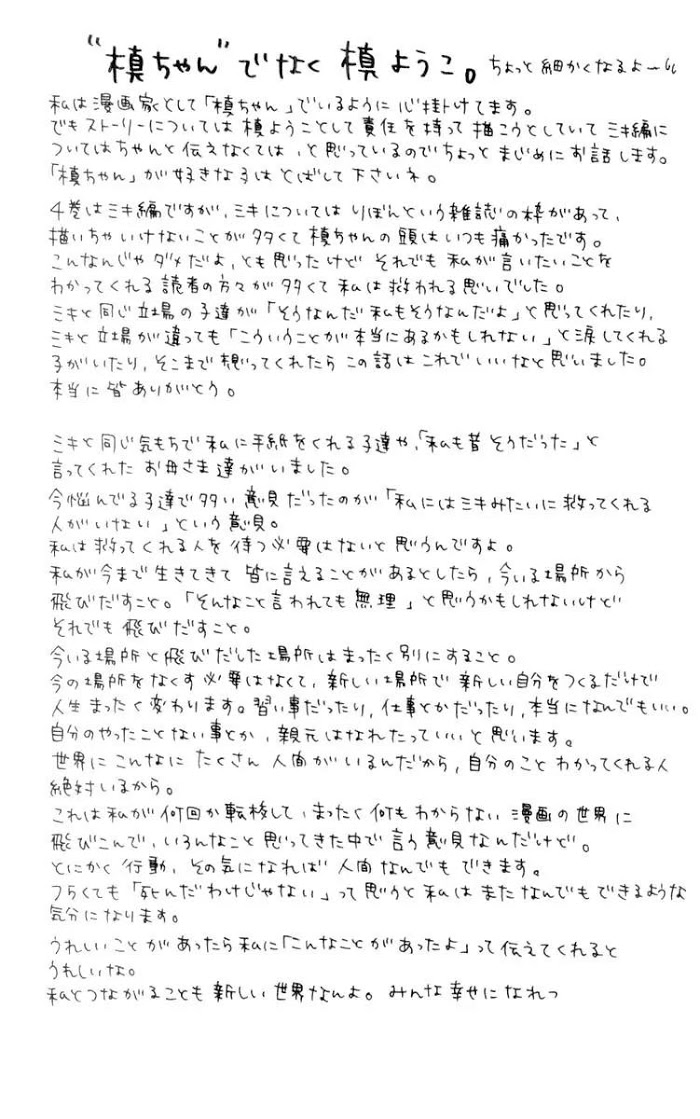 "槙ちゃん"でなく 槙ようこ。ちょっと細かくなるよー
私は漫画家として「槙ちゃん」でいるように心掛けてます。
でもストーリーについては 槙ようことして 責任を持って 描こうとしていて ミキ編に
ついてはちゃんと伝えなくては、と思っているのでちょっと まじめに お話します。
「槙ちゃん」が好きな子は とばして下さいネ。
4巻はミキ編ですが、ミキについては りぼんという雑誌の枠があって、
描いちゃいけないことが多くて 槙ちゃんの頭はいつも痛かったです。
こんなんじゃ ダメだよ、とも思ったけど それでも 私が言いたいことを
わかってくれる 読者の方々が多くて 私は 救われる思いでした。
ミキと同じ立場の子達が「そうなんだ 私もそうなんだよ」と思ってくれたり、
ミキと立場が違っても「こういうことが本当にあるかもしれない」と涙してくれる
子がいたり、そこまで想ってくれたら この話は これでいいなと思いました。
本当に皆 ありがとう。
ミキと同じ気もちで 私に手紙をくれる子達や、「私も昔 そうだった」と
言ってくれた お母さま達がいました。
今悩んでる子達で多い意見だったのが「私にはミキみたいに 救ってくれる
人がいない」という意見。
私は救ってくれる人を 待つ必要はないと思うんですよ。
私が今まで 生きてきて 皆に言えることがあるとしたら、今いる場所から
飛びだすこと。「そんなこと言われても 無理」と思うかもしれないけど
それでも 飛びだすこと。
今いる場所と飛びだした場所は まったく別にすること。
今の場所をなくす必要はなくて、新しい場所で 新しい自分をつくるだけで
人生まったく変わります。習い事だったり、仕事とかだったり、本当になんでもいい。
自分のやったことない事とか、親元はなれたっていいと思います。
世界に こんなに たくさん 人間がいるんだから、自分のこと わかってくれる人
絶対いるから。
これは私が何回か転校して、まったく何もわからない 漫画の世界に
飛びこんで、いろんなこと思ってきた中で 言う意見なんだけど。
とにかく行動、その気になれば 人間なんでも できます。
つらくても「死んだわけじゃない」って思うと 私は またなんでもできるような
気分になります。
うれしいことがあったら私に「こんなことがあったよ」って伝えてくれると
うれしいな。
私とつながることも 新しい世界なんよ。みんな幸せになれっ